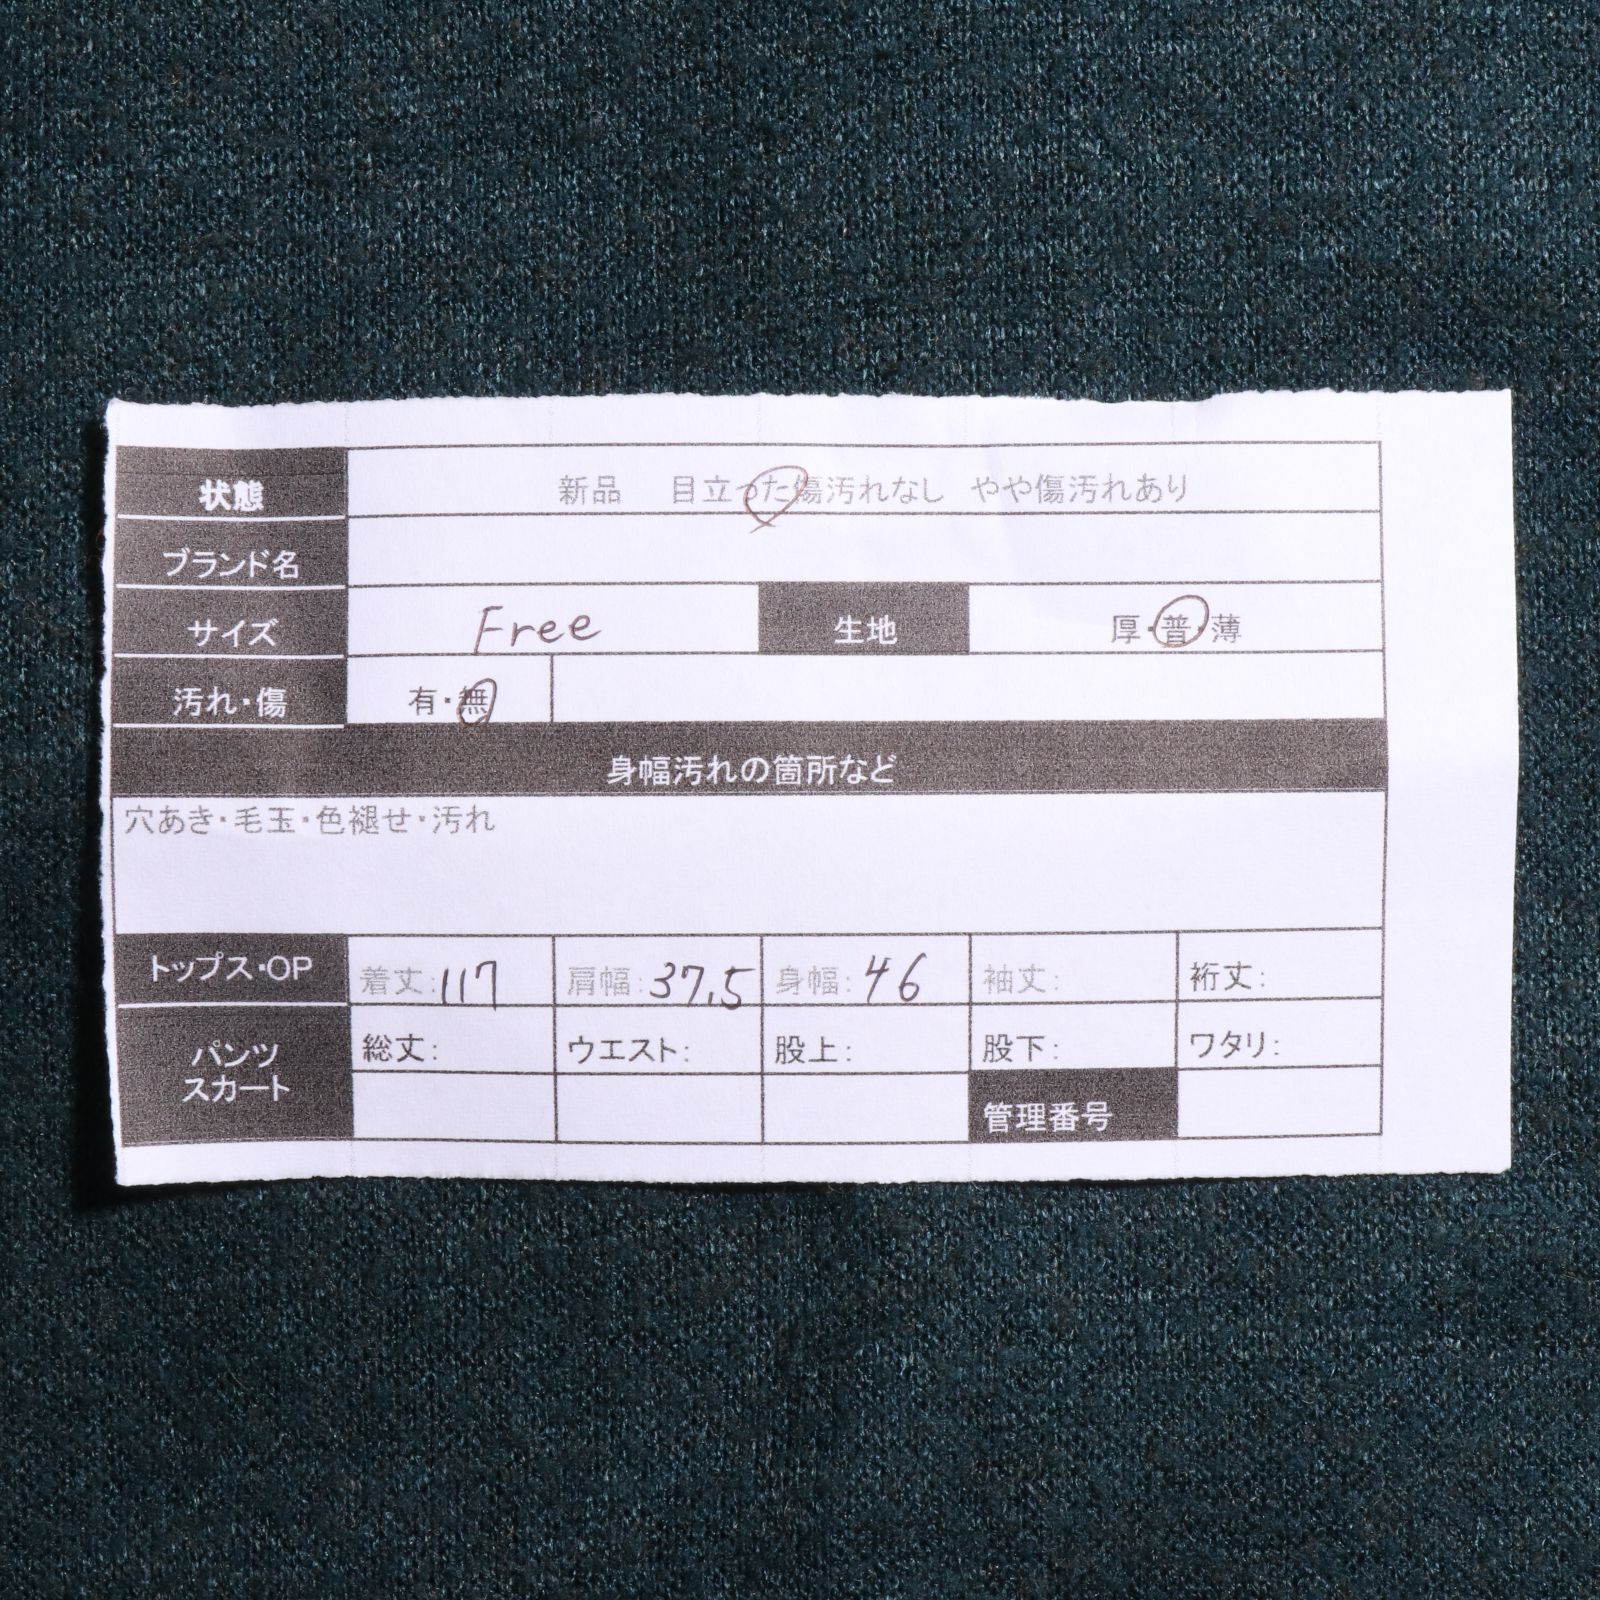 状態 新品 目立った傷汚れなし やや傷汚れあり
ブランド名
サイズ Free 生地 厚・普・薄
汚れ・傷 有・無
身幅汚れの箇所など
穴あき・毛玉・色褪せ・汚れ
トップス・OP 着丈:117 肩幅:37.5 身幅:46 袖丈: 裄丈:
パンツ
スカート
総丈: ウエスト: 股上: 股下: ワタリ:
管理番号